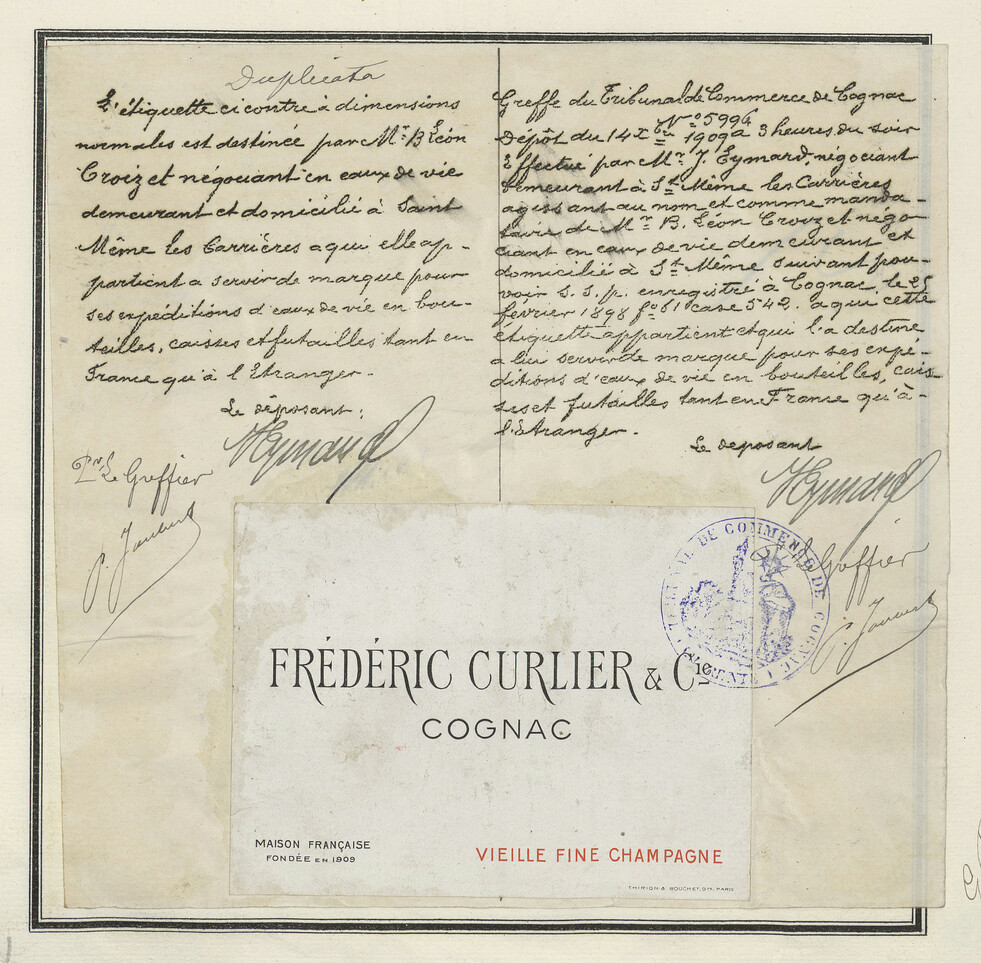 Duplicata
L'étiquette ci contre à dimensions
normales est destinée par Mr. B Léon
Croizet négociant en eaux de vie
demeurant et domicilié à Saint
Même les Carrières a qui elle ap-
partient a servir de marque pour
ses expéditions d'eaux de vie en bou-
teilles, caisses et futailles tant en
France qu'à l'Etranger.
Le déposant:
JEymard
Pr. Le Greffier
Greffe du Tribunal de Commerce de Cognac
No 5994
Dépôt du 14 Xbre 1909 à 3 heures du soir
Effectué par Mr J. Eymard, négociant
demeurant à St Même les Carrières
agissant au nom et comme manda-
taire de Mr B. Léon Croizet négo-
ciant en eaux de vie demeurant et
domicilié à St Même suivant pou-
voir s.s.p. enregistré à Cognac, le 25
février 1898 fo 61 case 542. a qui cette
étiquette appartient et qui l'a destine
a lui servir de marque pour ses expé-
ditions d'eaux de vie en bouteilles, cais-
ses et futailles tant en France qu'à
l'Etranger.
Le deposant
JEymard
Le Greffier
TRIBUNAL DE COMMERCE DE COGNAC
FRÉDÉRIC CURLIER & Cie
COGNAC
MAISON FRANÇAISE
FONDÉE EN 1909
VIEILLE FINE CHAMPAGNE
THIRION & BOUCHET, Srs, PARIS